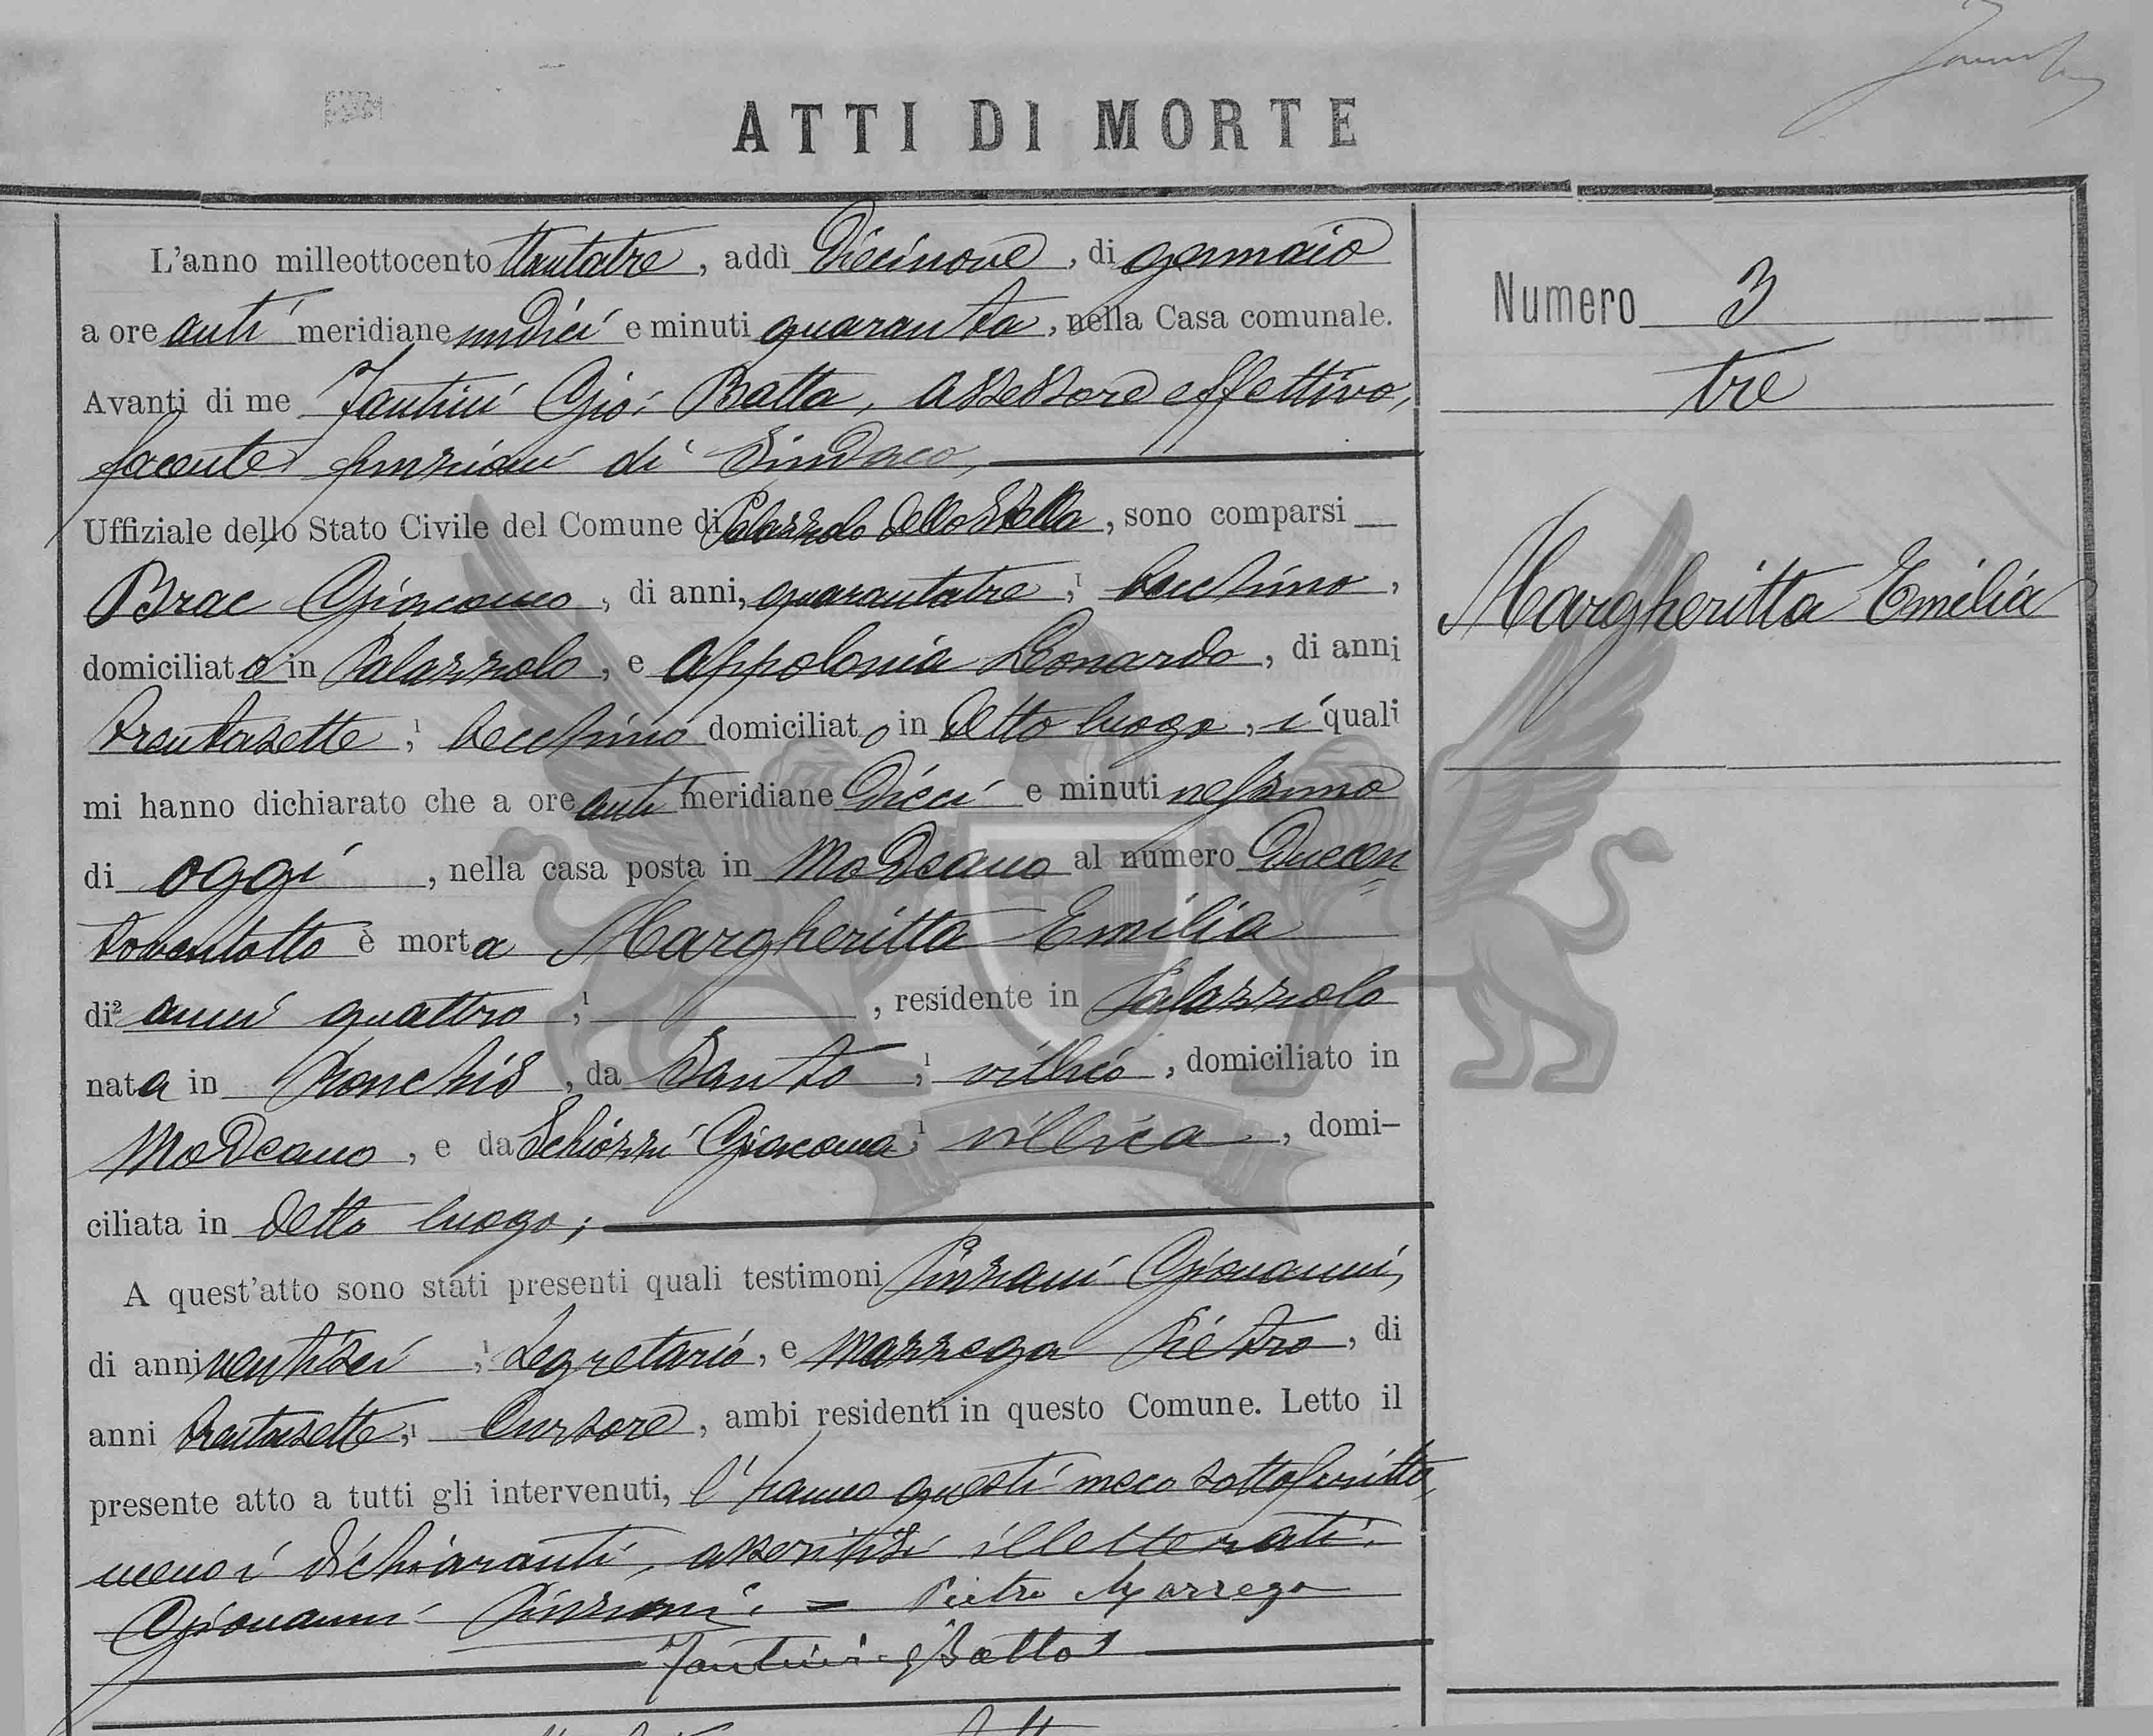 ATTI DI MORTE
L'anno milleottocento ttantatre, addì diecinove, di gennaio
a ore anti meridiane undici e minuti quaranta, nella Casa comunale.
Avanti di me Fantini Gio: Batta, assessore effettivo,
facente funzioni di Sindaco,
Uffiziale dello Stato Civile del Comune di Palazzolo dello Stella, sono comparsi
Brac Giacomo, di anni, quarantatre, becchino,
domiciliato in Palazzolo, e Appolonia Leonardo, di anni
trentasette, becchino domiciliato in detto luogo, i quali
mi hanno dichiarato che a ore anti meridiane dieci e minuti nessuno
di oggi, nella casa posta in Modeano al numero duecen
toventotto è morta Margheritta Emilia
di² anni quattro, residente in Palazzolo
nata in Ronchis, da Santo, villico, domiciliato in
Modeano, e da Schiozzi Giacoma, villica, domi-
ciliata in detto luogo;
A quest'atto sono stati presenti quali testimoni Pinzani Giovanni,
di anni ventisei, Segretario, e Mazzega Pietro, di
anni trentasette, Cursore, ambi residenti in questo Comune. Letto il
presente atto a tutti gli intervenuti, l'hanno questi meco sottoscritto,
meno i dichiaranti, asseritisi illetterati.
Giovanni Pinzani. = Pietro Mazzega
Fantini GBatta
Numero 3
tre
Margheritta Emilia